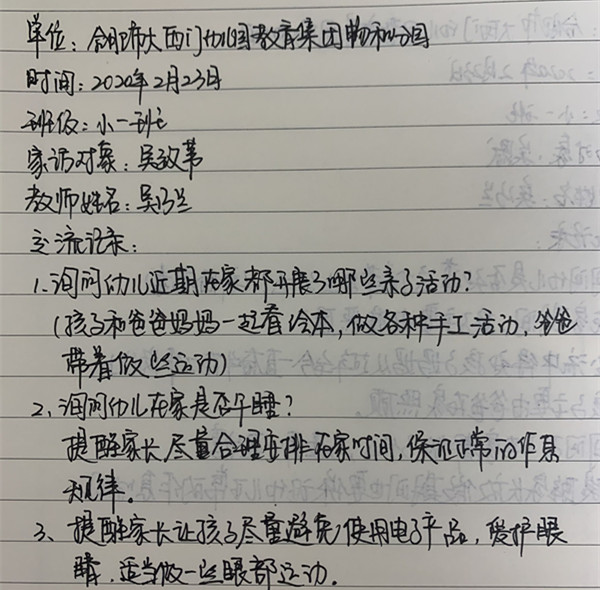 单位：合肥市大西门幼儿园教育集团物和分园
时间：2020年2月23日
班级：小一班
家访对象：吴致苇
教师姓名：吴诗兰
交流记录：
1、询问幼儿近期在家都开展了哪些亲子活动？
（孩子和爸爸妈妈一起看绘本，做各种手工活动，爸爸
带着做些运动）
2、询问幼儿在家是否午睡？
提醒家长尽量合理安排在家时间，保证正常的作息
规律。
3、提醒家长让孩子尽量避免使用电子产品，爱护眼
睛，适当做一些眼部运动。